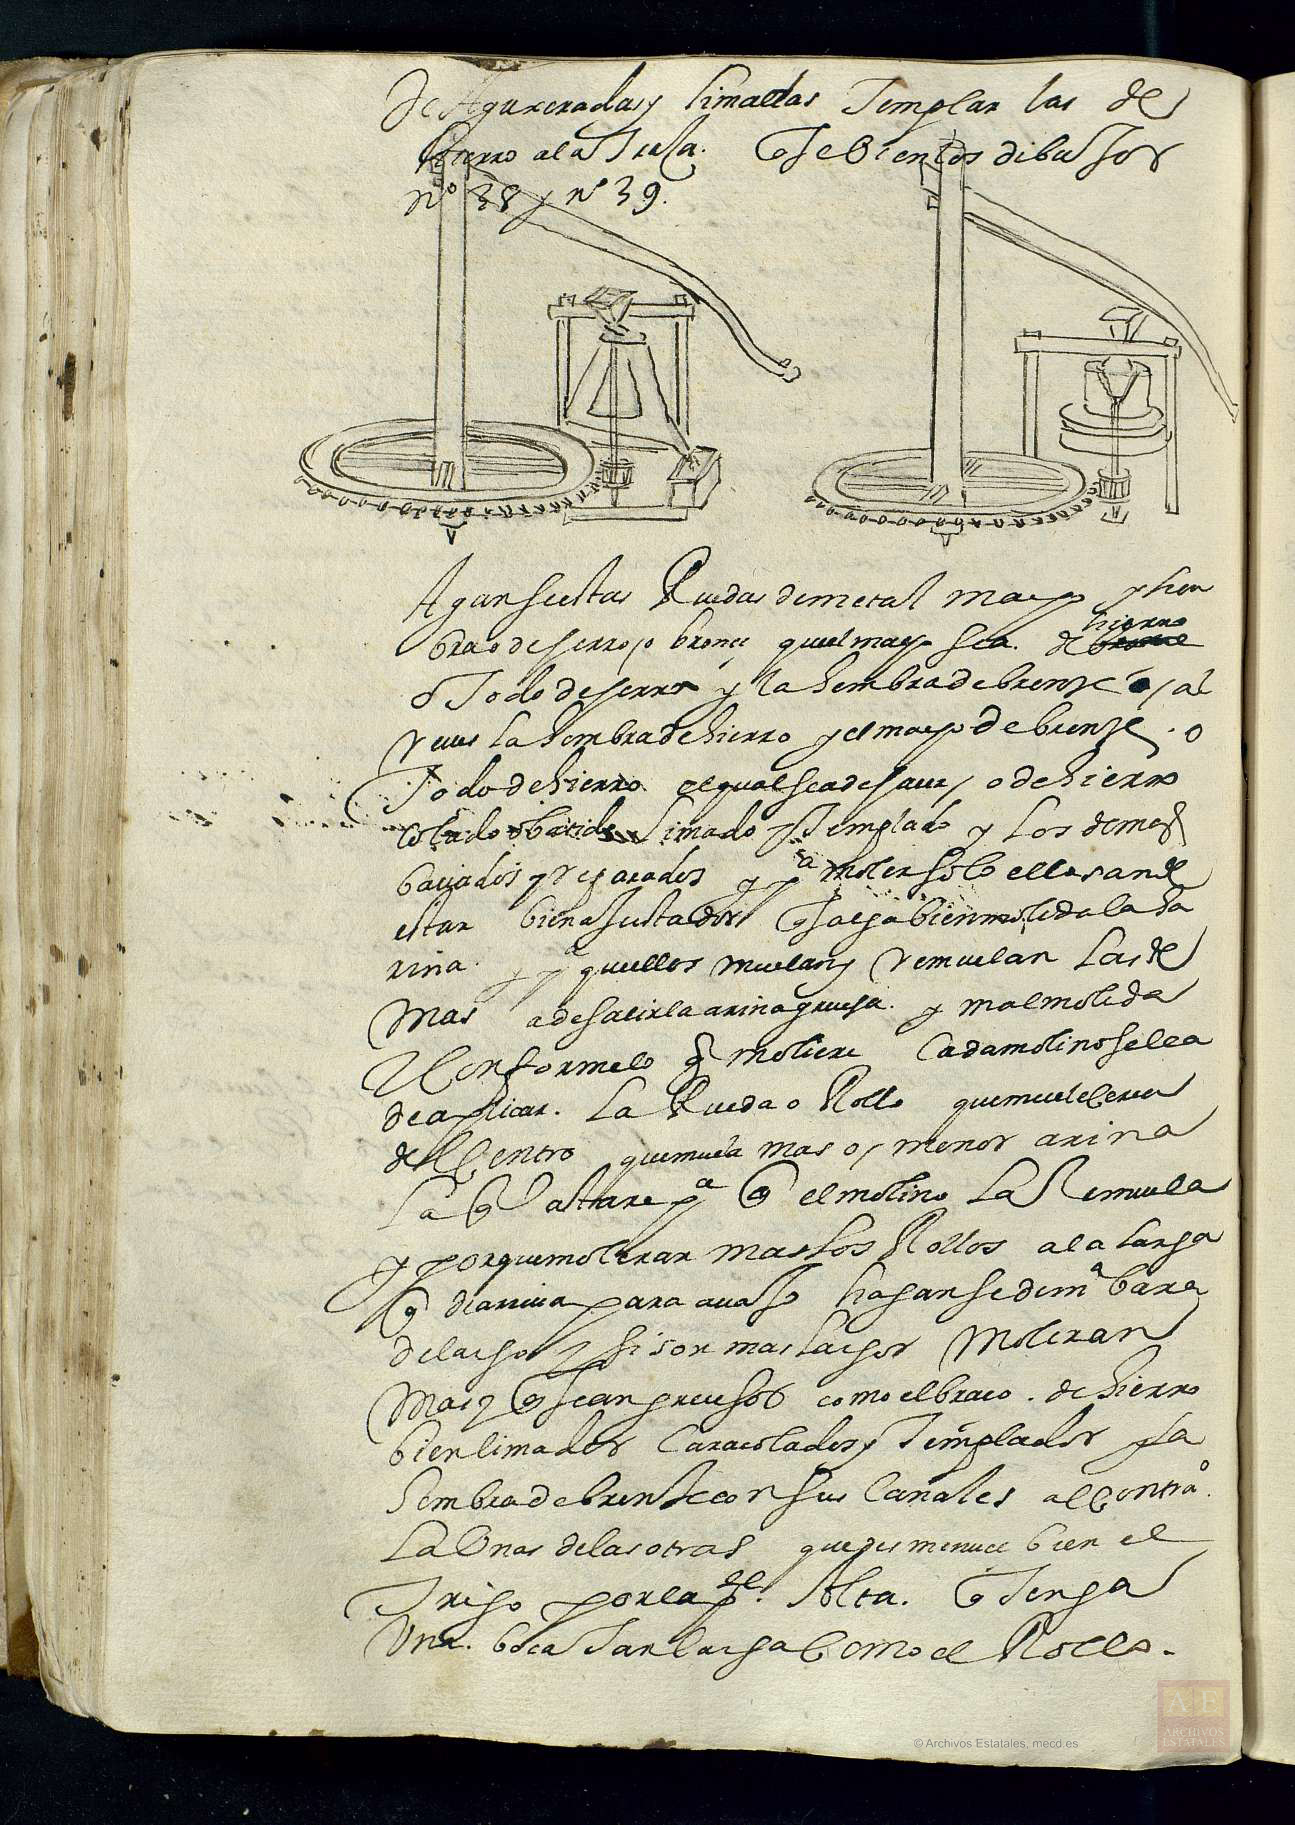 De Agureradas y limadas Templar las de
hierro a la Traza. q Se Bien los dibujos
nº 38 y nº 39.
Agan se estas Ruedas de metal macho y hem
bra o de fierro, o bronce que el macho sea. de hierro
o Todo de fierro y la hembra de bronze o, al
reves La hembra de hierro y el macho de bronze. o
Todo de hierro el qual sea de , o de hierro
colado o batido Limado y Templado y los demas
baciados y reparados y pa moler solo ellos an de
estar bien ajustados q salga bien molida la ha
rina. y pa que ellos muelan y remuelan Las de
mas a de salir la arina gruesa. y mal molida
Conforme lo q moliere Cada molino se le a
de aplicar. La Rueda o Rollo que muele cerca
del Centro que muela mas o, menos arina
La q bastare pa q el molino La Remuela
y porque moleran mas Los Rollos a la larga
q de arriva para avajo hagan se de ma bara
de largo y si son mas largos Moleran
Mas y q sean gruesos como el braço. de hierro
bien limados Caracolados y Templados y la
hembra de bronze con sus Canales al Contro.
La Unas de las otras que desmenuce bien el
Trigo por la pte. Alta. q Tenga
Una. boca Tan larga Como el Rollo.
© Archivos Estatales, mecd.es
AE
ARCHIVOS
ESTATALES